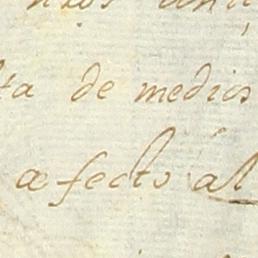 ta de medios
afecto al